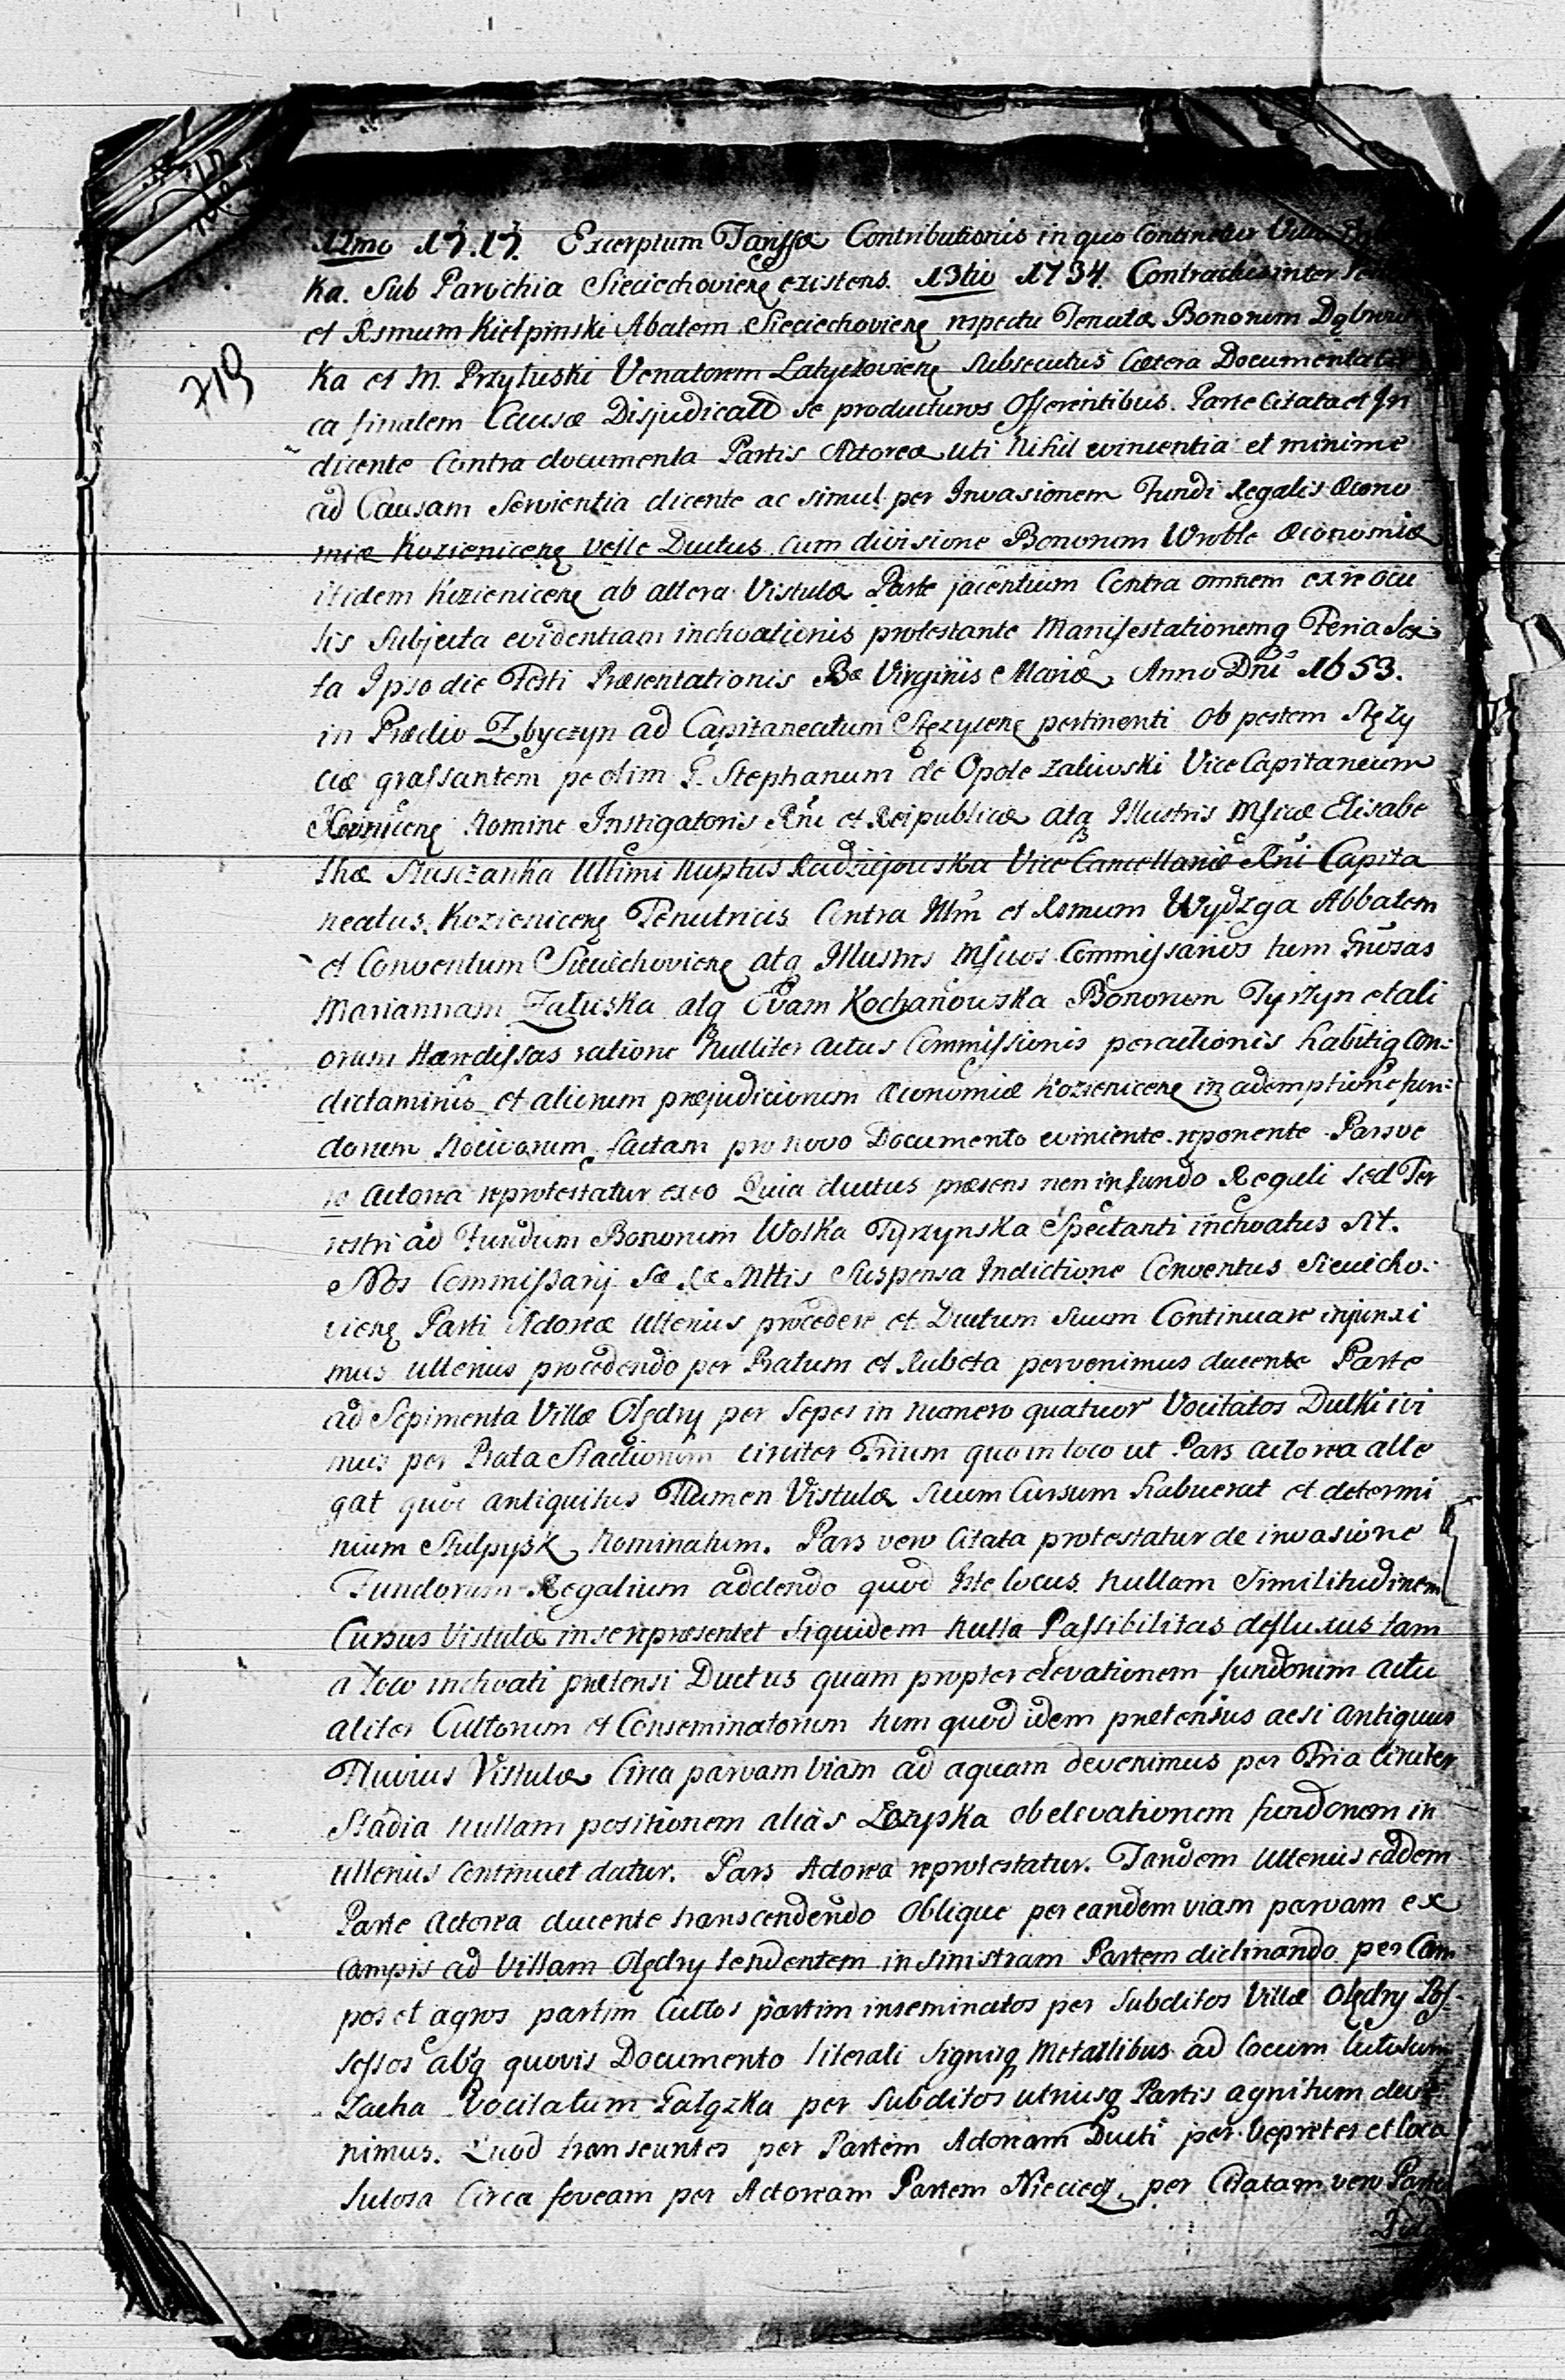 12mo 17.17. Excerptum Tariffæ Contributionis in quo Continetur Villa
ka. Sub Parochia Sieciechoviens existens. 13tio 1734. Contractus inter
et Rsmum Kiełpinski Abatem Sieciechoviens respectu Tenutæ Bonorum
ka et M. Przyłuski Venatorem Latyczoviens subsecutus Cætera Documenta
ca finalem Causæ Disjudicatt se producturos Offerentibus. Parte Citata et In
dicente Contra documenta Partis Actoreæ uti Nihil evincentia et minime
ad Causam Servientia dicente ac simul per Invasionem Fundi Regalis Æcono
miæ Kozienicens velle Ductus cum divisione Bonorum Wroble Æconomiæ
itidem Kozienicens ab altera Vistulæ Parte jacentium Contra omnem ex re ocu
lis Subjecta evidentiam inchoationis protestante Manifestationemq Feria Sex
ta Ipso die Festi Præsentationis Bæ Virginis Mariæ, Anno Dni 1653.
in Prædio Zbyczyn ad Capitaneatum Stęzycens pertinenti ob pestem Stęzy
ciæ grassantem pe olim G. Stephanum de Opole Zaliwski Vice Capitaneum
Nomine Instigatoris Rni et Reipublicæ atq Illustris Mficæ Elisabe
thæ Słuszanka Ultimi Nuptus Radziejowska Vice Cancellariæ Rni Capita
neatus Kozienicens Tenutricis Contra Illm et Rsmum Wydzga Abbatem
et Conventum Sieciechoviens atq Illustres Mficos Commissarios tum Gnosas
Mariannam Załuska atq Evam Kochanowska Bonorum Tyrzyn et ali
orum Hæredissas ratione Nulliter actus Commissionis peractionis habitiq Con-
dictaminis et aliorum præjudiciorum Æconomiæ Kozienicens in ademptione fun-
dorum Nocivorum factam pro novo Documento eviniente reponente. Pars ve
ro Actorea reprotestatur ex eo Quia ductus præsens non in fundo Regali sed Ter
restri ad Fundum Bonorum Wolka Tyrzynska Spectanti inchoatus sit.
Nos Commissarij Sæ Ræ Mttis Suspensa Indictione Conventus Sieciecho-
viens Parti Actoreæ Ulterius procedere et Ductum suum Continuare injunxi
mus ulterius procedendo per Pratum et Rubeta pervenimus ducente Parte
ad Sepimenta Villæ Olędry per Sepes in Numero quatuor Vocitatos Dulki ivi
mus per Prata Stadiorum Circiter Trium quo in loco ut Pars actorea alle
gat quod antiquitus Flumen Vistulæ Suum Cursum habuerat et determi
nium Nominatum. Pars vero Citata protestatur de invasione
Fundorum Regalium addendo quod Iste locus Nullam Similitudinem
Cursus Vistulæ in se repræsentet siquidem Nulla Passibilitas defluxus tam
a loco inchoati prætensi Ductus quam propter elevationem fundorum actu
aliter Cultorum et Conseminatorum tum quod idem prætensus acsi antiquus
Fluvius Vistulæ Circa parvam viam ad aquam devenimus per Tria Circiter
Stadia Nullam positionem alias Łozyska ob elevationem fundorum in
ulterius continuet datur. Pars Actorea reprotestatur. Tandem Ulterius eadem
Parte Actorea ducente transcendendo Oblique per eandem viam parvam ex
Campis ad Villam Olędry tendentem in Sinistram Partem declinando per Cam
pos et agros partim Cultos partim inseminatos per Subditos Villæ Olędry Pos-
sessos absq quovis Documento literali Signisq Metallibus ad locum lutosum
Łacha Vocitatum Gałązka per Subditos utriusq Partis agnitum deve
nimus. Quod transeuntes per Partem Actoream Ducti per Vepretes et loca
lutosa Circa foveam per Actoream Partem Nieciecz, per Citatam vero Parte